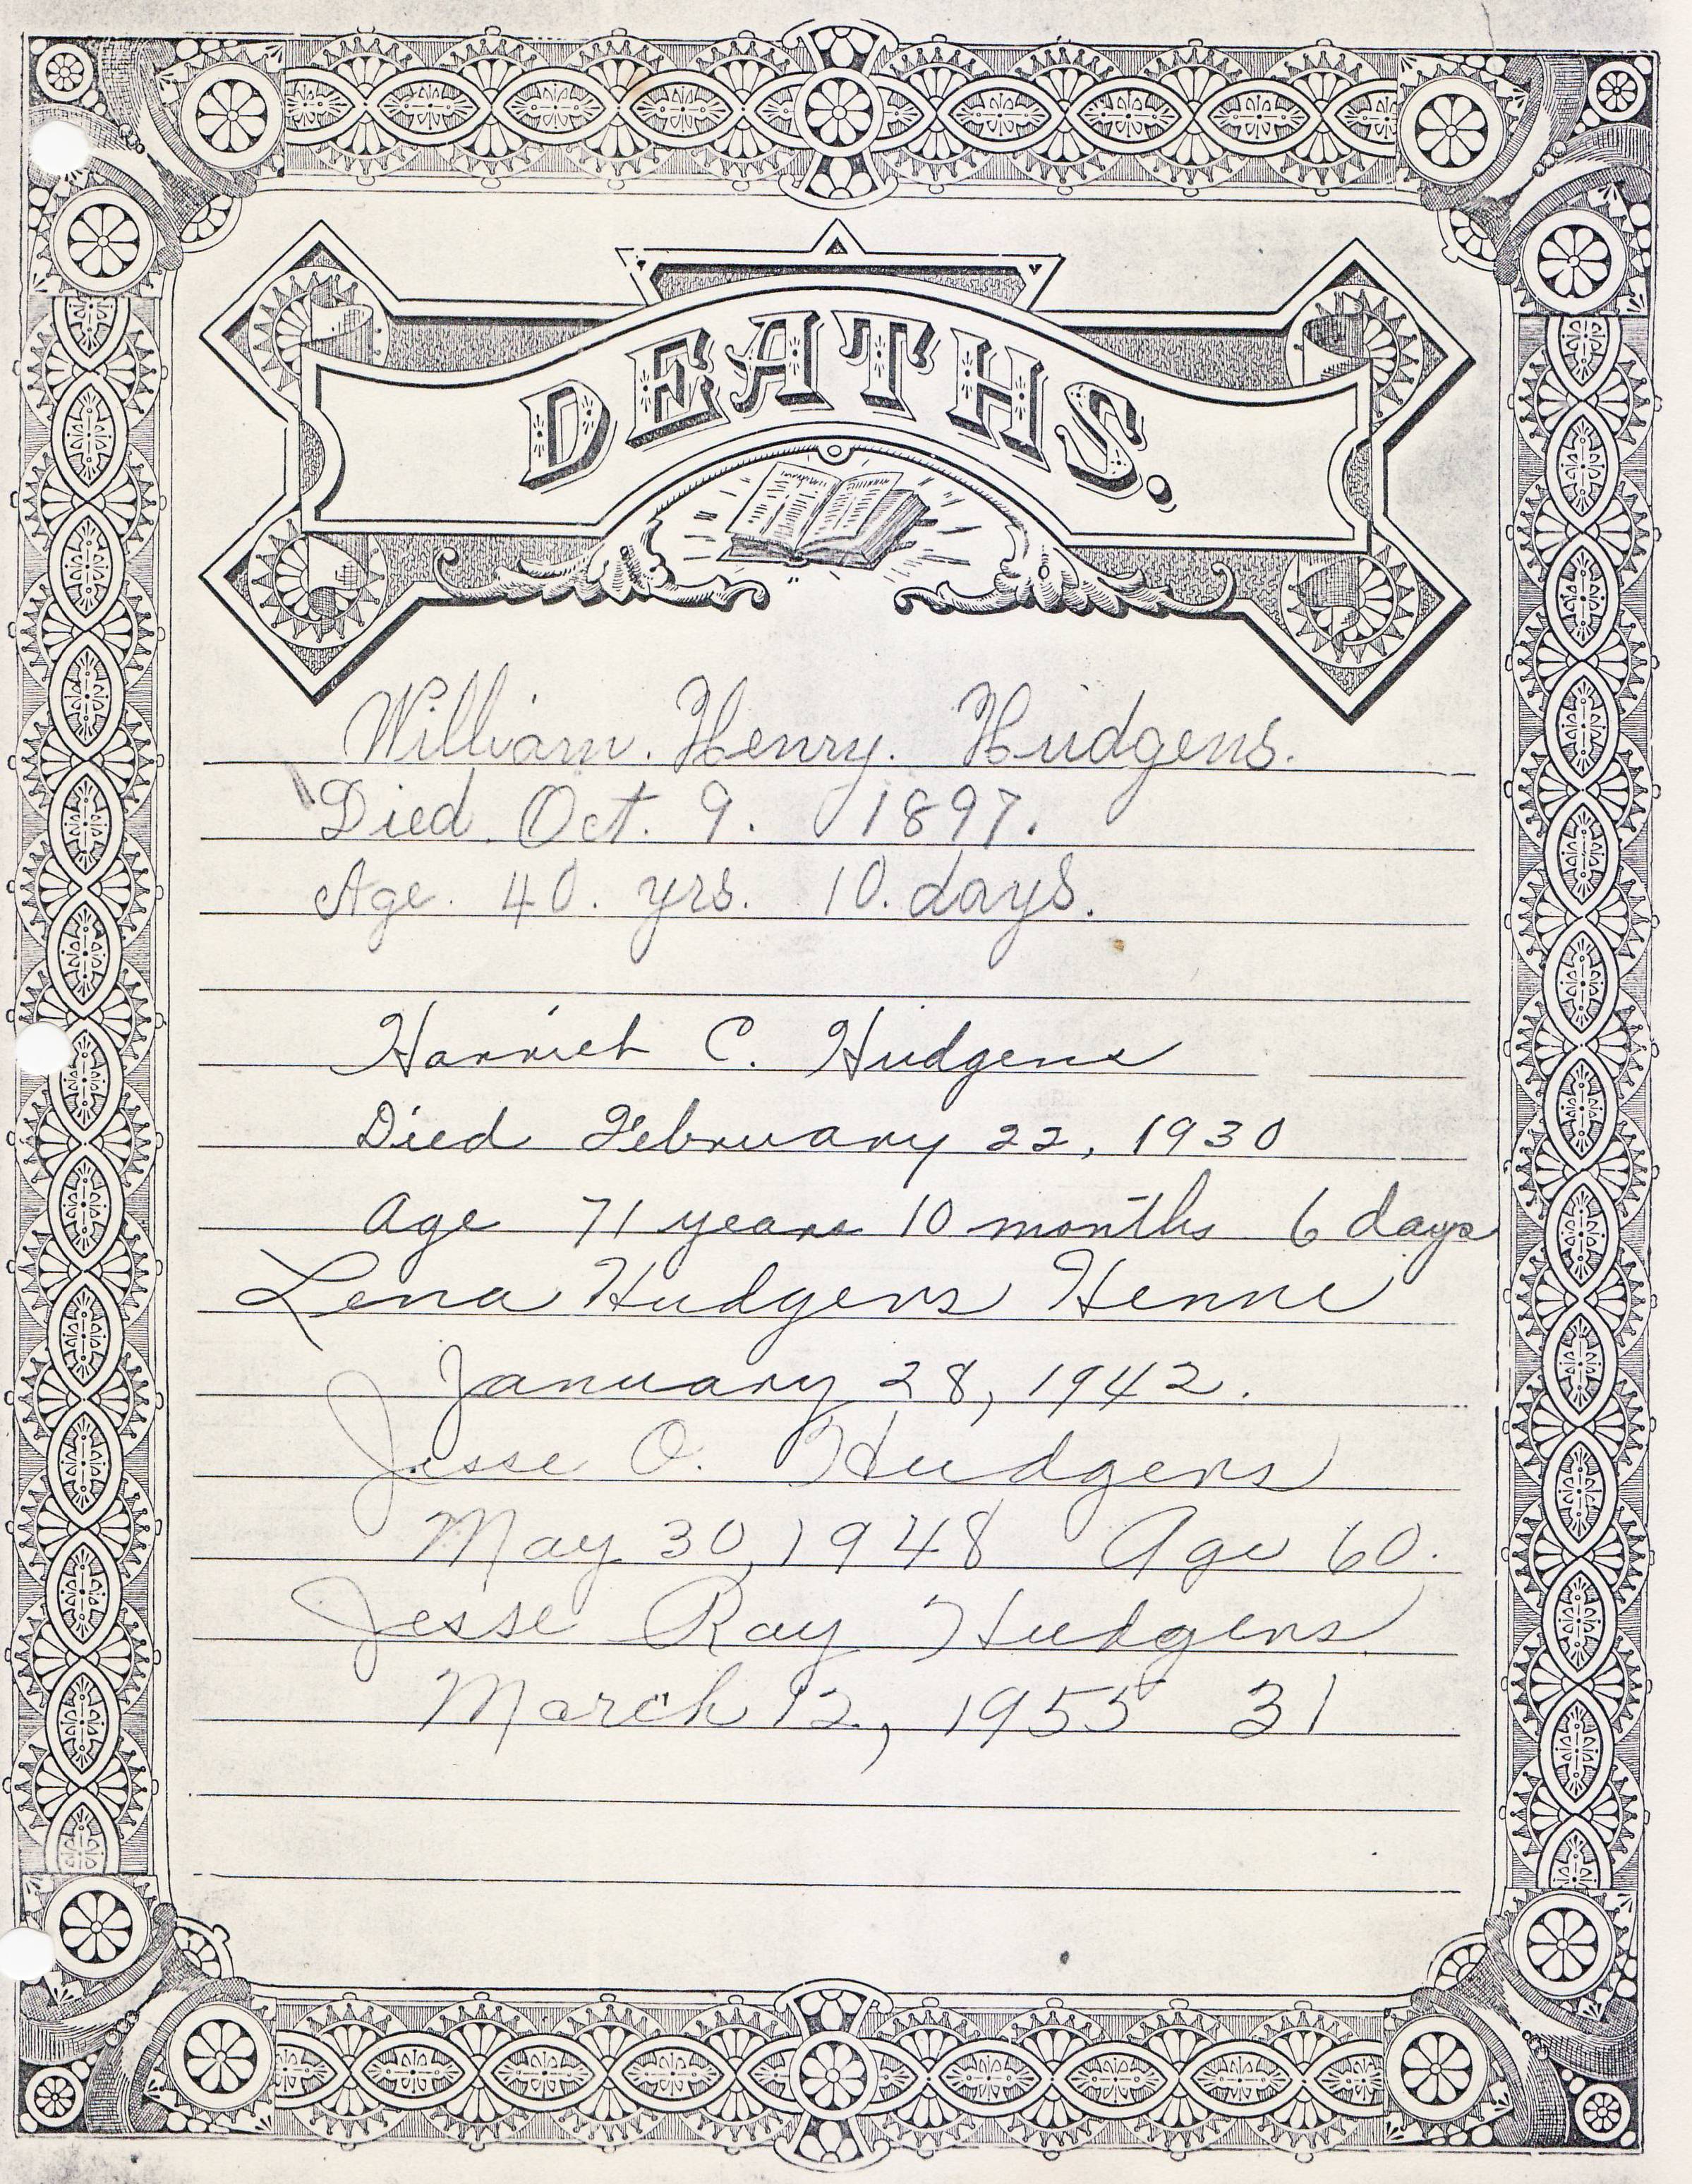 DEATHS.
William. Henry. Hudgens.
Died. Oct. 9. 1897.
Age. 40. yrs. 10. days.
Harriet C. Hudgens
Died February 22, 1930
Age 71 years 10 months 6 days
Lena Hudgens Henne
January 28, 1942.
Jesse O. Hudgens
May 30, 1948 Age 60.
Jesse Ray Hudgens
March 12, 1955 31